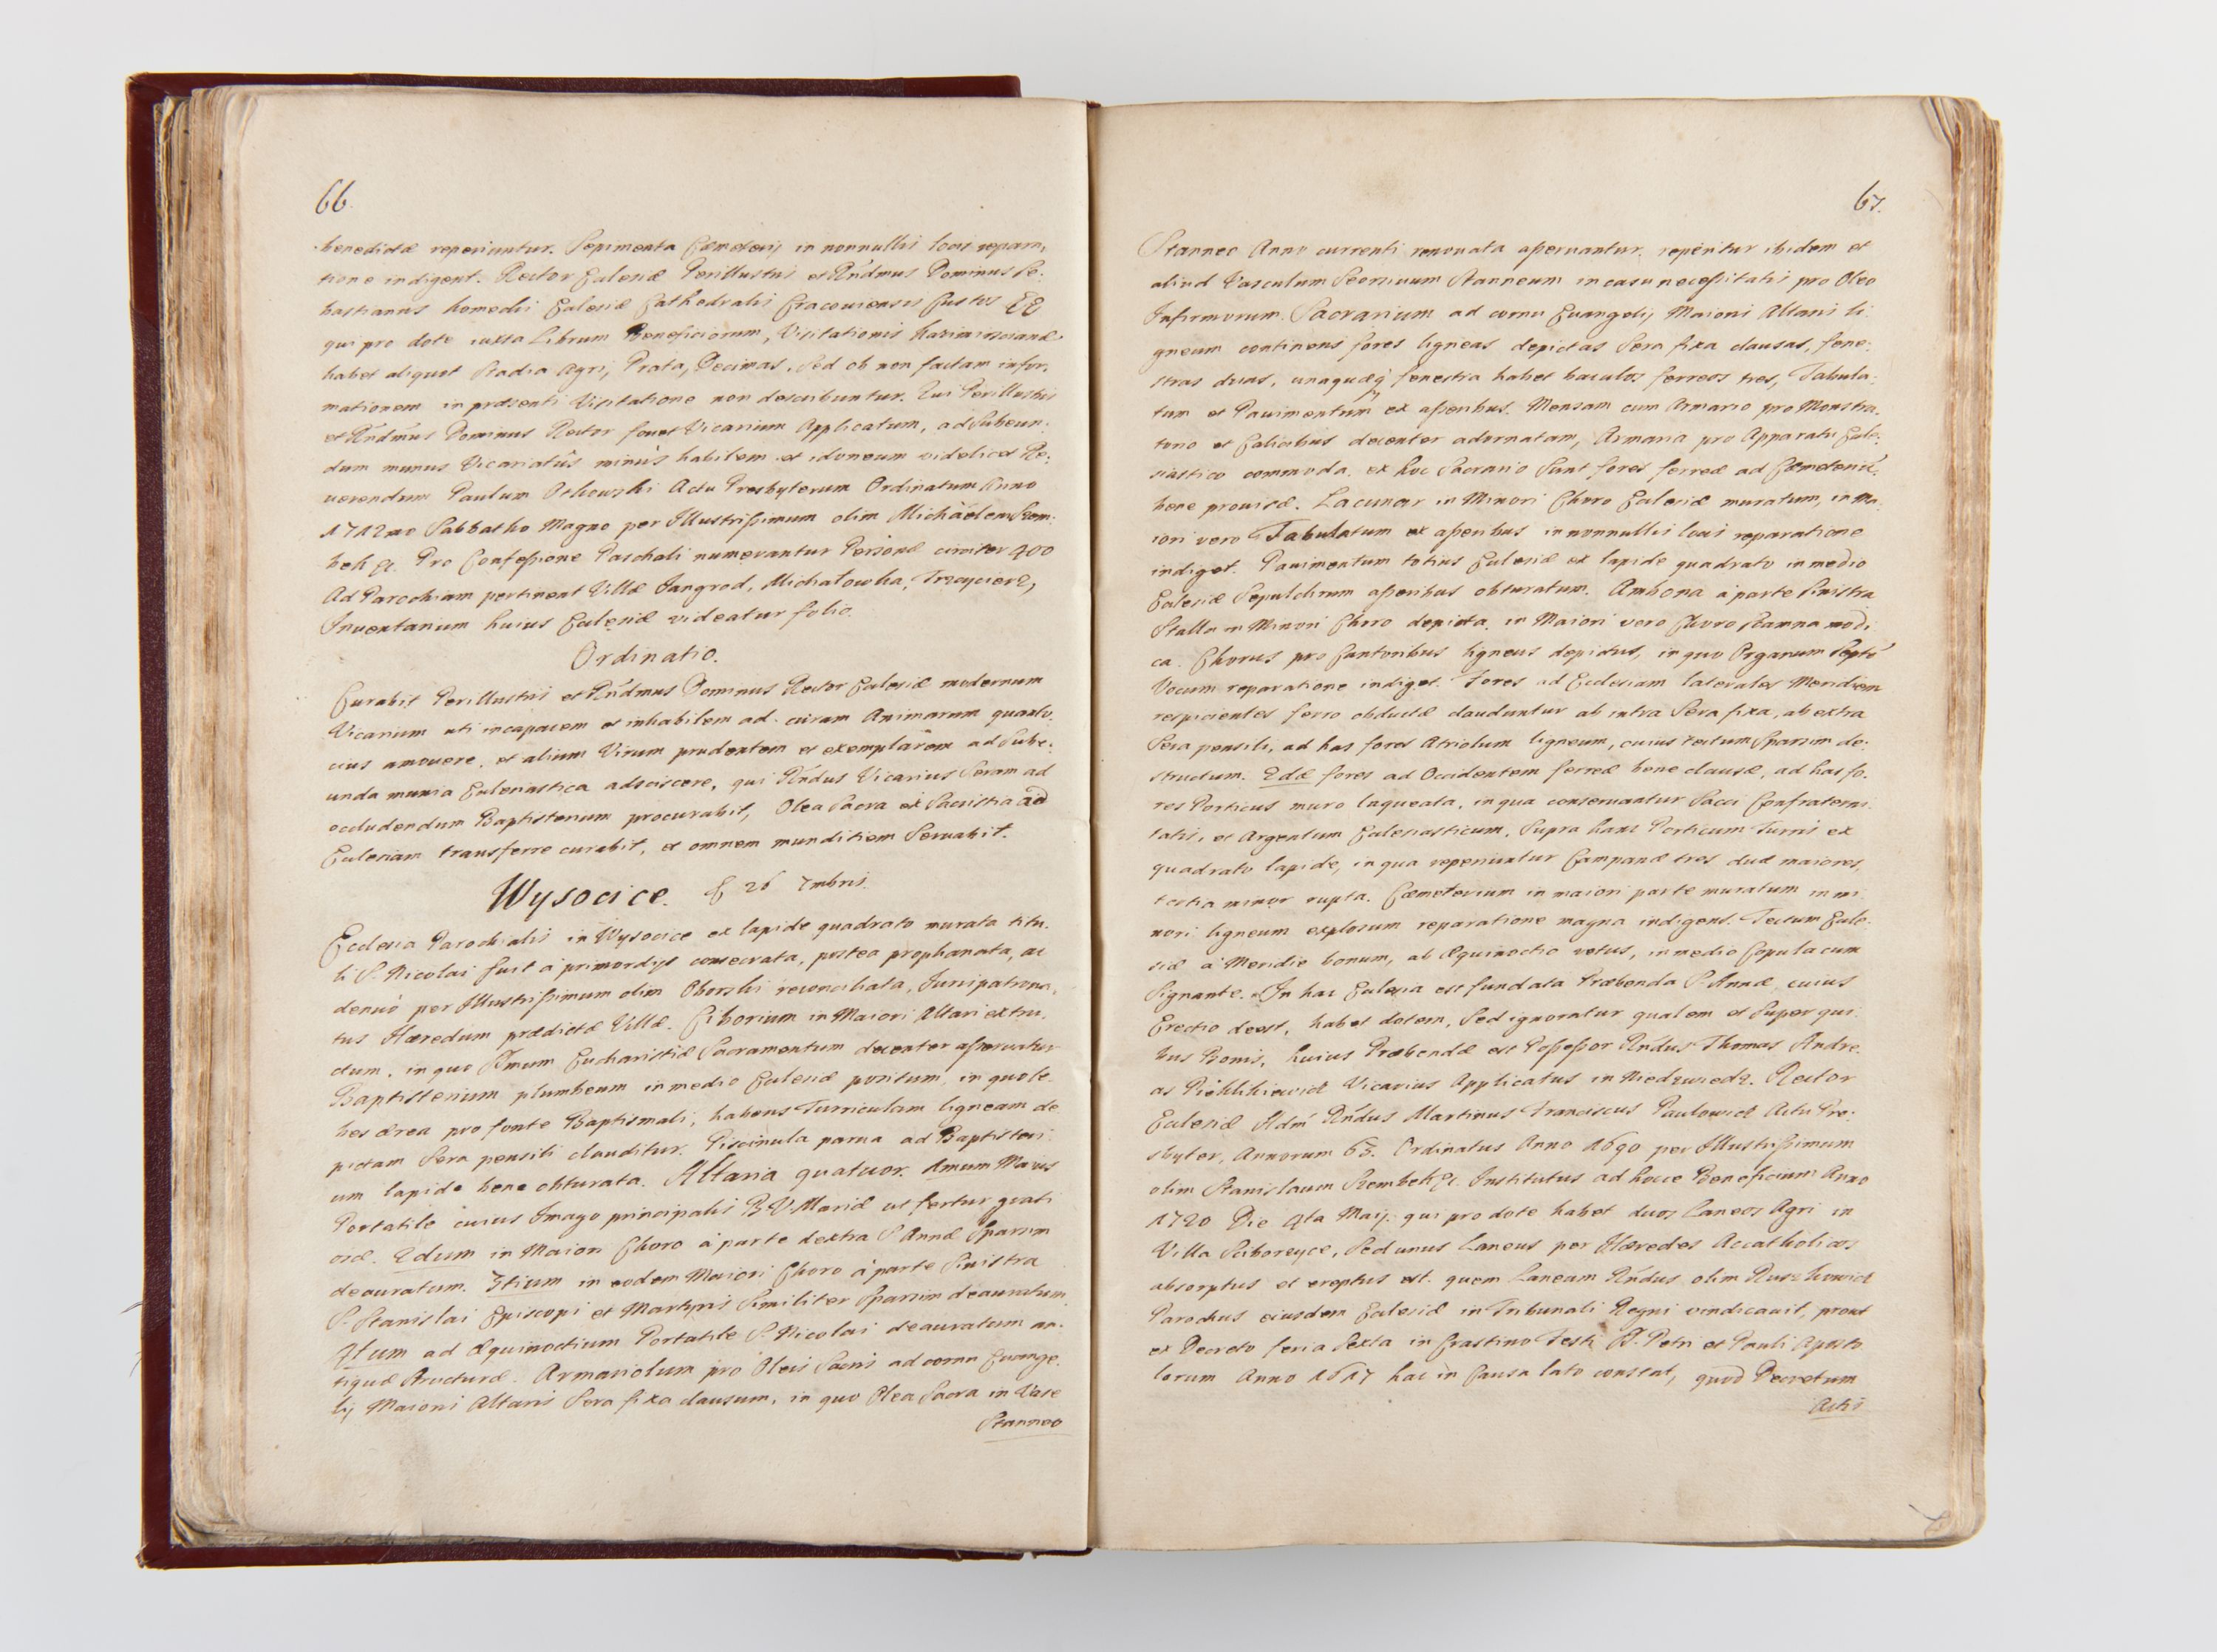 66.
benedictæ reperiuntur. Sepimenta Cæmeterij in nonnullis locis repara,
tione indigent. Rector Ecclesiæ Perillustris et Rndmus Dominus Se:
bastianus Komecki Ecclesiæ Cathedralis Cracoviensis Custos
qui pro dote iuxta Librum Beneficiorum, Visitationis
habet aliquot Stadia Agri, Prata, Decimas, sed ob non factam infor,
mationem in præsenti Visitatione non describuntur. Qui Perillustris
et Rndmus Dominus Rector fouet Vicarium Applicatum, ad Subeun:
dum munus Vicariatûs minùs habilem et idoneum videlicet Re:
uerendum Paulum Actu Presbyterum Ordinatum Anno
1712mo Sabbatho Magno per Illustrissimum olim Michäelem Szem:
bek &c. Pro Confessione Paschali numerantur Personæ circiter 400
Ad Parochiam pertinent Villæ Jangrod, Michałowka, Trzyciersz,
Inuentarium huius Ecclesiæ videatur folio.
Ordinatio.
Curabit Perillustris et Rndmus Dominus Rector Ecclesiæ modernum
Vicarium uti incapacem et inhabilem ad curam Animarum quanto,
cius amouere, et alium Virum prudentem et exemplarem ad Sube:
unda munia Ecclesiastica adsciscere, qui Rndus Vicarius Seram ad
occludendum Baptisterium procurabit, Olea Sacra ex Sacristia ad
Ecclesiam transferre curabit, et omnem munditiem Seruabit.
Wysocice. 26 7mbris.
Ecclesia Parochialis in Wysocice ex lapide quadrato murata titu.
li S. Nicolai fuit à primordijs consecrata, postea prophanata, ac
denuò per Illustrissimum olim Oborski reconciliata, Jurispatrona,
tus Hæredum prædictæ Villæ. Ciborium in Maiori Altari extru.
ctum, in quo Smum Eucharistiæ Sacramentum decenter asseruatur
Baptisterium plumbeum in medio Ecclesiæ positum, in quo le,
bes ærea pro fonte Baptismali, habens Turriculam ligneam de
pictam Sera pensili clauditur. Piscinula parua ad Baptisteri
um lapide bene obturata. Altaria quatuor. 1mum Maius
Portatile cuius Imago principalis B V. Mariæ ut fertur grati
osæ. 2dum in Maiori Choro à parte dextra S Annæ Sparsim
deauratum. 3tium in eodem Maiori Choro à parte Sinistra
S. Stanislai Episcopi et Martyris Similiter Sparsim deauratum.
4tum ad Æquinoctium Portatile S. Nicolai deauratum an.
tiquæ Structuræ. Armariolum pro Oleis Sacris ad cornu Euange.
lij Maioris Altaris Sera fixa clausum, in quo Olea Sacra in Vase
Stanneo
67.
Stanneo Anno currenti renouata asseruantur, reperitur ibidem et
aliud Vasculum Seorsiuum Stanneum in casu necessitatis pro Oleo
Infirmorum. Sacrarium ad cornu Euangelij Maioris Altaris li.
gneum continens fores ligneas depictas Sera fixa clausas, fene:
stras duas, unaquæq fenestra habet baculos ferreos tres, Tabula:
tum et Pauimentum ex asseribus. Mensam cum Armario pro Monstra.
torio et Calicibus decenter adornatam, Armaria pro Apparatu Eccle:
siastico commoda. ex hoc Sacrario Sunt fores ferreæ ad Cæmeteriũ
bene prouisæ. Lacunar in Minori Choro Ecclesiæ muratum, in Ma,
iori vero Tabulatum ex asseribus in nonnullis locis reparatione
indiget. Pauimentum totius Ecclesiæ ex lapide quadrato in medio
Ecclesiæ Sepulchrum asseribus obturatum. Ambona à parte Sinistra
Stalla in Minori Choro depicta, in Maiori vero Choro Scamna modi
ca. Chorus pro Cantoribus ligneus depictus, in quo Organum Septẽ
Vocum reparatione indiget. Fores ad Ecclesiam laterales Meridiem
respicientes ferro obductæ clauduntur ab intra Sera fixa, ab extra
Sera pensili, ad has fores Atriolum ligneum, cuius tectum Sparsim de:
structum. 2dæ fores ad Occidentem ferreæ bene clausæ, ad has fo.
res Porticus muro laqueata, in qua conseruantur Sacci Confraterni.
tatis, et Argentum Ecclesiasticum. Supra hanc Porticum Turris ex
quadrato lapide, in qua reperiuntur Campanæ tres duæ maiores,
tertia minor rupta. Cæmeterium in maiori parte muratum in mi
nori ligneum explosum reparatione magna indigens. Tectum Eccle.
siæ à Meridie bonum, ab Æquinoctio vetus, in medio Copula cum
Signante. In hac Ecclesia est fundata Præbenda S. Annæ, cuius
Erectio deest, habet dotem, Sed ignoratur qualem et Super qui:
bus Bonis, huius Præbendæ est Possessor Rndus Thomas Andre.
as Vicarius Applicatus in Niedzwiedz. Rector
Ecclesiæ Adm Rndus Martinus Franciscus Paulowicz Actu Pre:
sbyter, Annorum 63. Ordinatus Anno 1690 per Illustrissimum
olim Stanislaum Szembek &c. Institutus ad hocce Beneficium Anno
1720 Die 4ta Maij. qui pro dote habet duos Laneos Agri in
Villa Sciborzyce, Sed unus Laneus per Hæredes Accatholicos
absorptus et ereptus est. quem Laneum Rndus olim Ruszkowicz
Parochus eiusdem Ecclesiæ in Tribunali Regni vindicauit, prout
ex Decreto feria Sexta in Crastino Festi S. Petri et Pauli Aposto
lorum Anno 1617 hac in Causa lato constat, quod Decretum
Actis